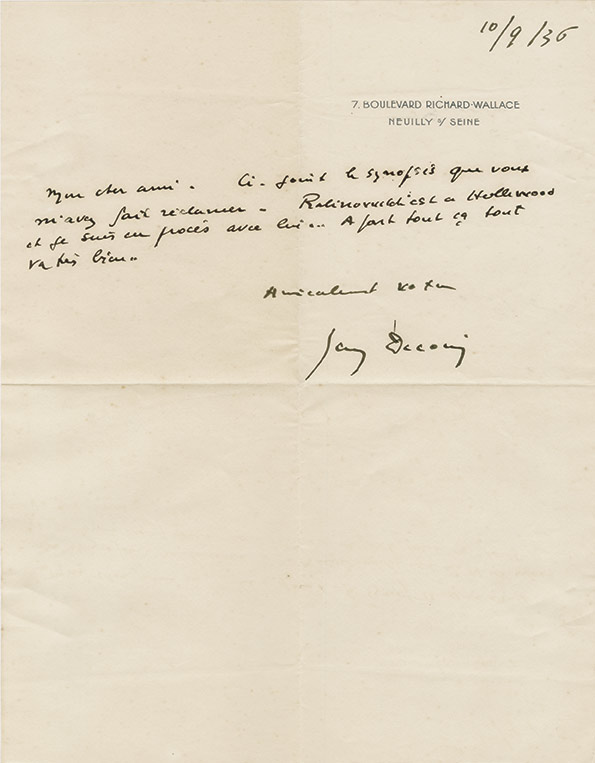 10/9/36
7. BOULEVARD RICHARD-WALLACE
NEUILLY S/ SEINE
Mon cher ami. Ci-joint le synopsis que vous
m'avez fait réclamer. Rabinovitch est a Hollywood
et je suis en procès avec lui... A part tout ça tout
va très bien..
Amicalement votre
Decoin